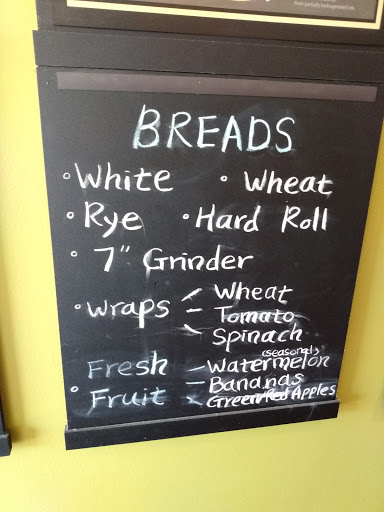 BREADS
• White • Wheat
• Rye • Hard Roll
• 7" Grinder
• Wraps - Wheat
- Tomato
- Spinach
(seasonal)
Fresh - Watermelon
- Bananas
• Fruit x Green/Red Apples